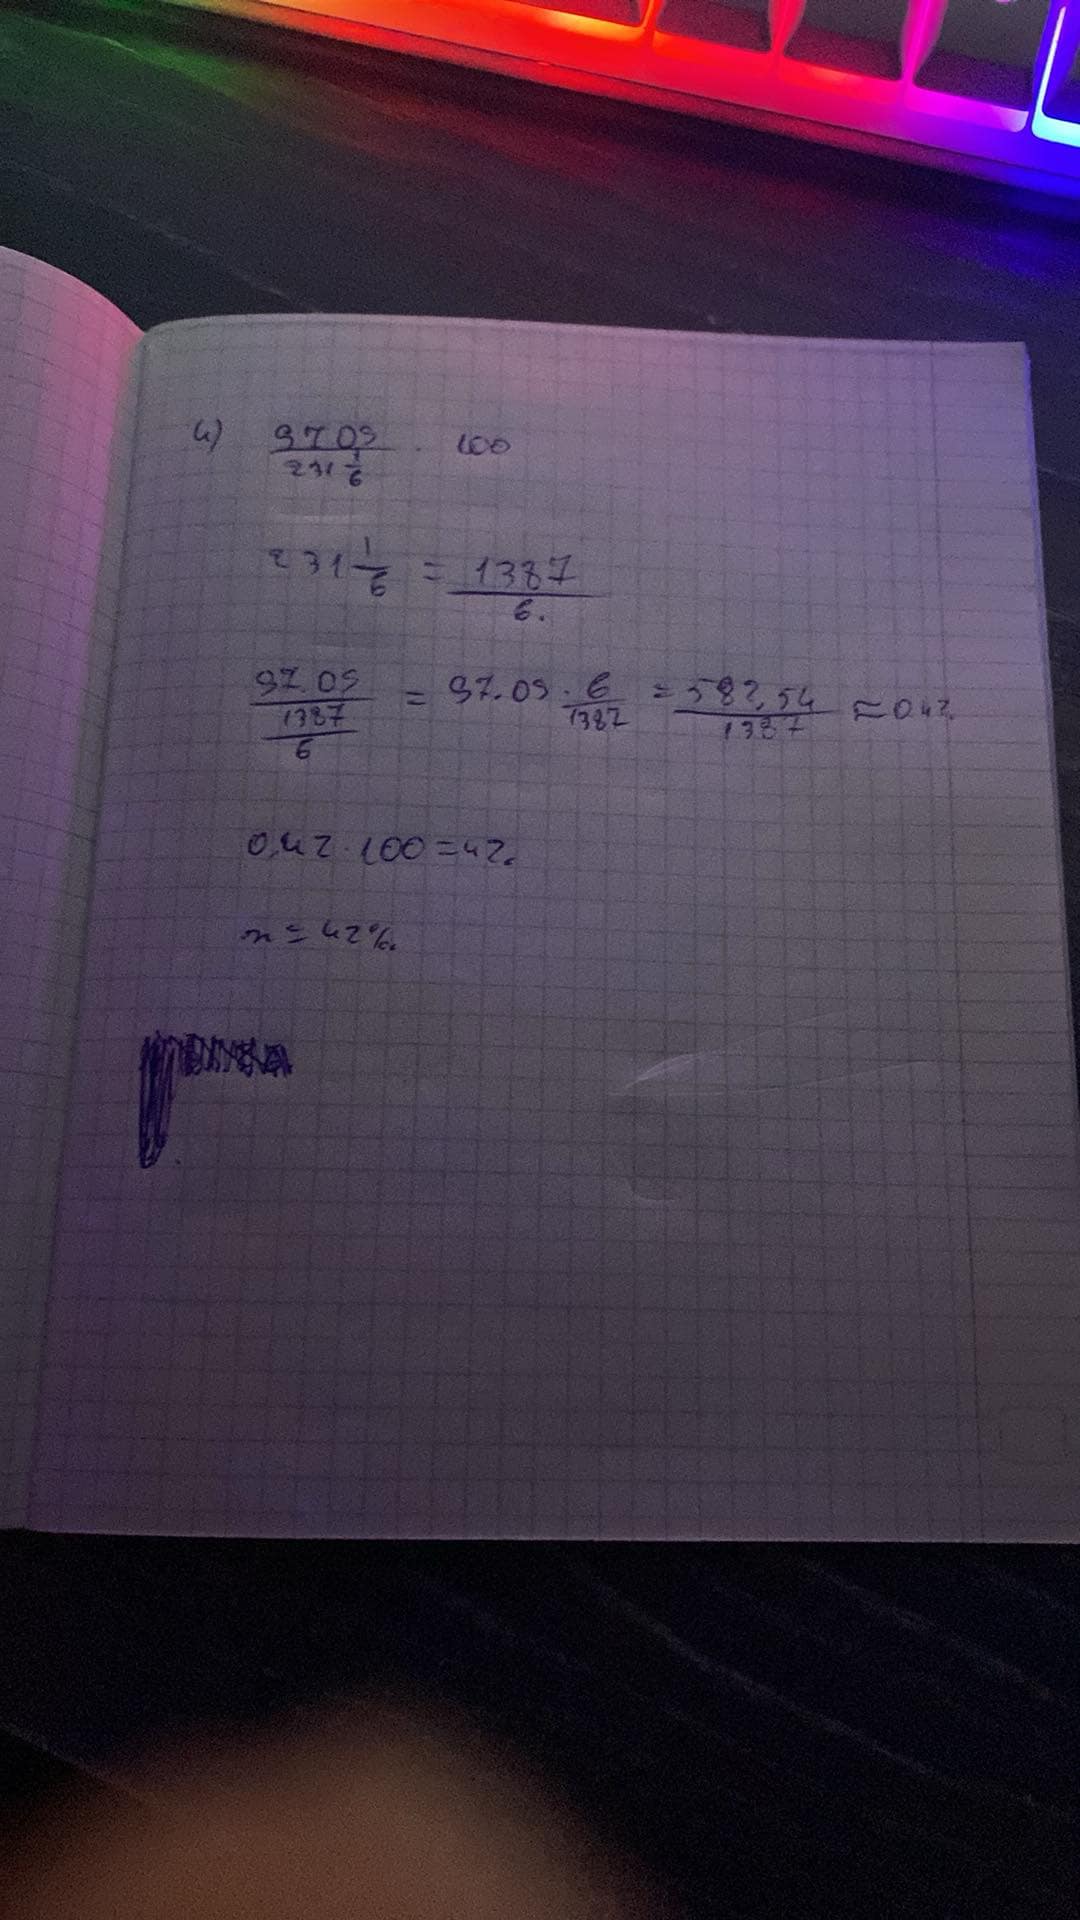 4) 97.09 / 231 1/6 · 100
231 1/6 = 1387 / 6.
97.09 / (1387 / 6) = 97.09 · 6 / 1387 = 582,54 / 1387 ≈ 0.42.
0,42 · 100 = 42.
n = 42%.